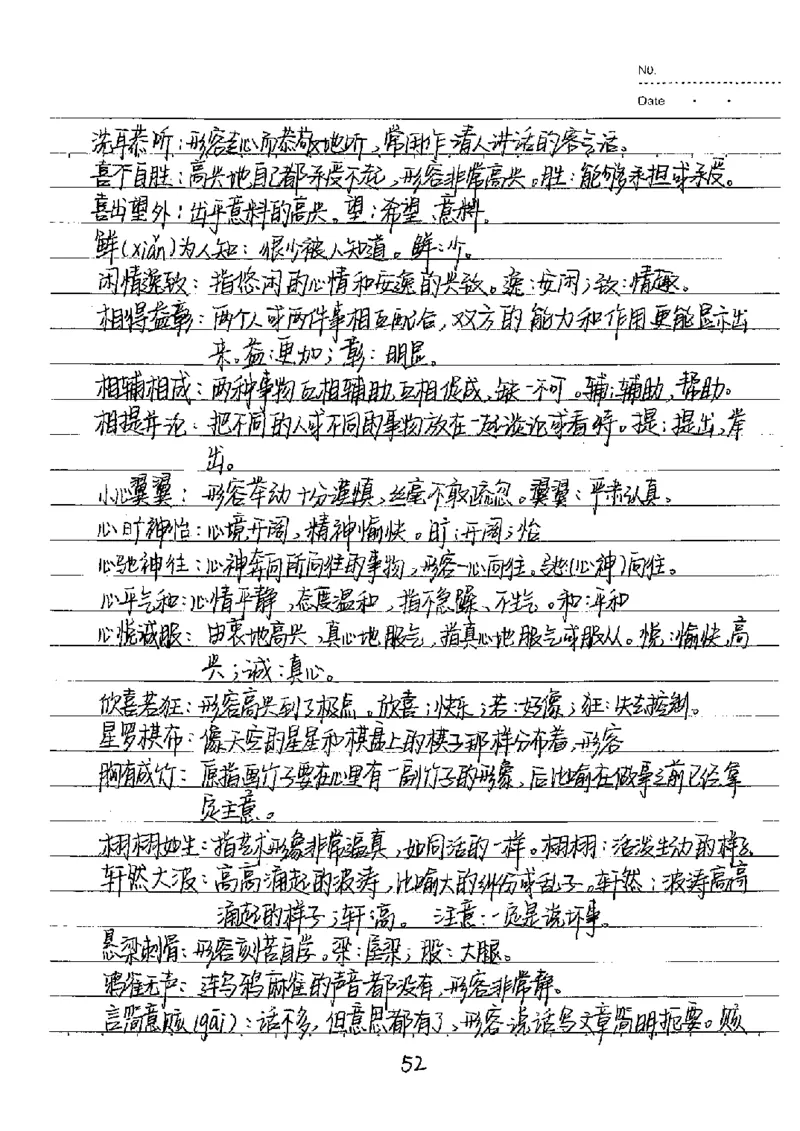 No.
Date
洗耳恭听：形容专心而恭敬地听，常用作请人讲话的客气话。
喜不自胜：高兴地自己都承受不起，形容非常高兴。胜：能够承担或承受。
喜出望外：出乎意料的高兴。望：希望、意料。
鲜(xiǎn)为人知：很少被人知道。鲜：少。
闲情逸致：指悠闲的心情和安逸的兴致。逸：安闲；致：情趣。
相得益彰：两个人或两件事相互配合，双方的能力和作用更能显示出
来。益：更加；彰：明显。
相辅相成：两种事物互相辅助，互相促成，缺一不可。辅：辅助，帮助。
相提并论：把不同的人或不同的事物放在一起谈论或看待。提：提出，举
出。
小心翼翼：形容举动十分谨慎，丝毫不敢疏忽。翼翼：严肃认真。
心旷神怡：心境开阔，精神愉快。旷：开阔；怡
心驰神往：心神奔向所向往的事物，形容一心向往。驰(心神)向往。
心平气和：心情平静，态度温和，指不急躁、不生气。和：平和
心悦诚服：由衷地高兴，真心地服气，指真心地服气或服从。悦：愉快，高
兴；诚：真心。
欣喜若狂：形容高兴到了极点。欣喜：快乐；若：好像；狂：失去控制。
星罗棋布：像天空的星星和棋盘上的棋子那样分布着，形容
胸有成竹：原指画竹子要在心里有一副竹子的形象，后比喻在做事之前已经拿
定主意。
栩栩如生：指艺术形象非常逼真，如同活的一样。栩栩：活泼生动的样子
轩然大波：高高涌起的波涛，比喻大的纠纷或乱子。轩然：波涛高高
涌起的样子；轩：高。 注意：一定是说坏事。
悬梁刺骨：形容刻苦自学。梁：屋梁；股：大腿。
鸦雀无声：连乌鸦麻雀的声音都没有，形容非常静。
言简意赅(gāi)：话不多，但意思都有了，形容说话写文章简明扼要。赅
52